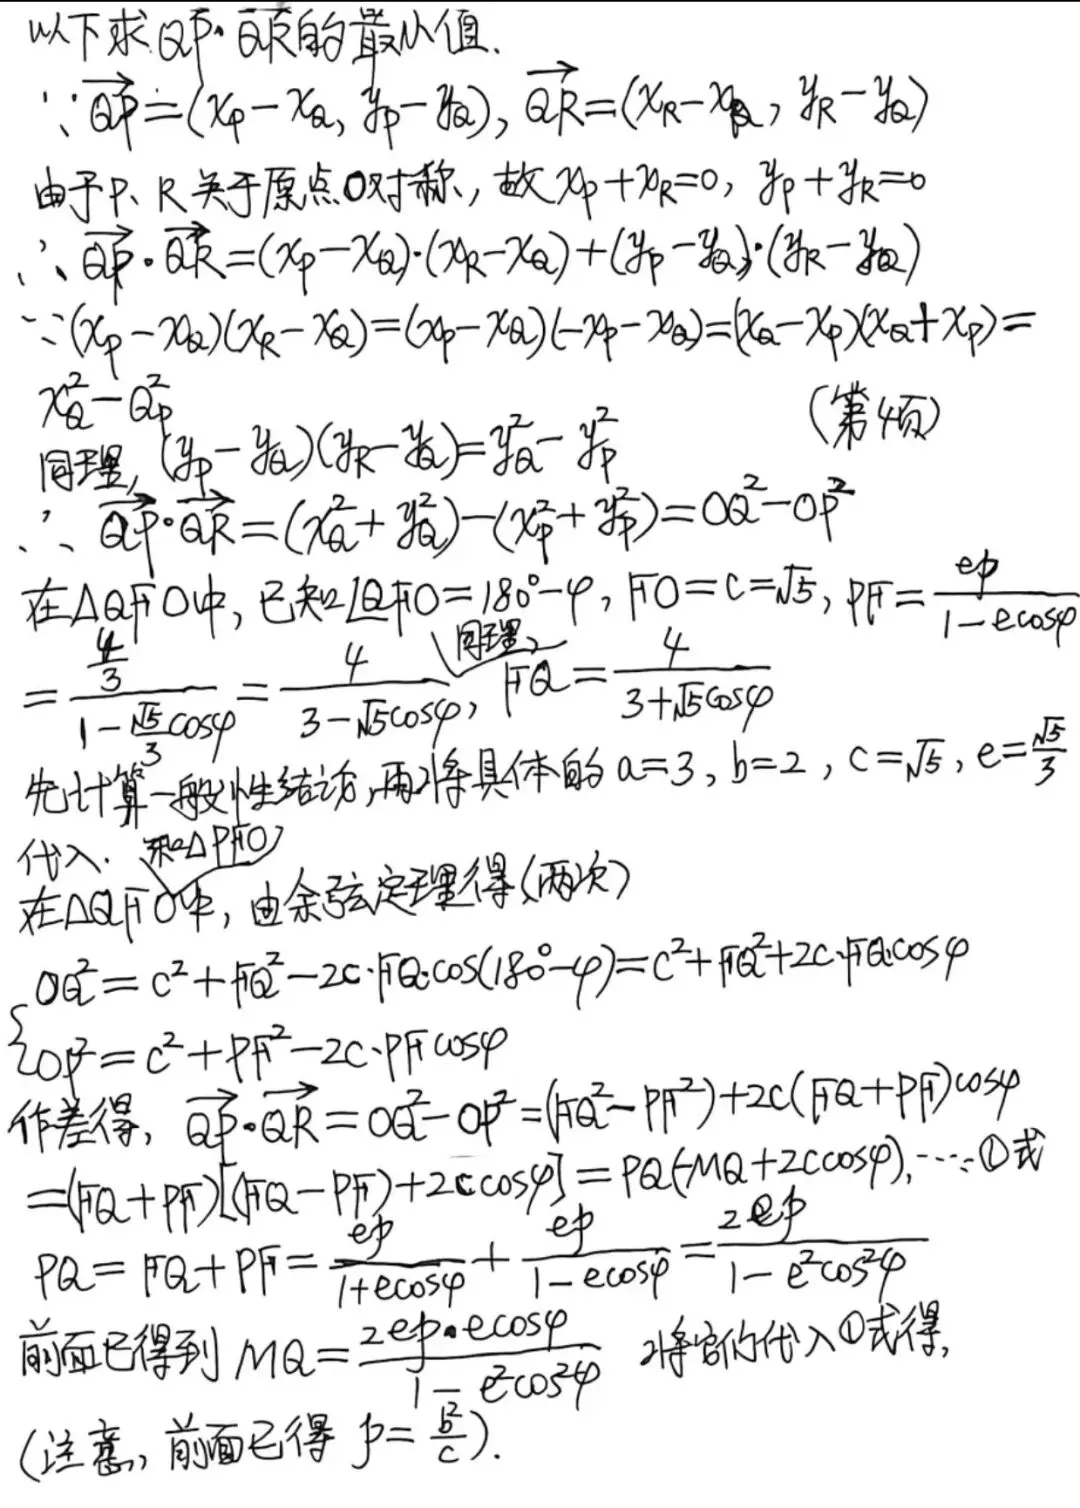 以下求QP·QR的最小值.
∵QP=(x_P-x_Q, y_P-y_Q), QR=(x_R-x_Q, y_R-y_Q)
由于P、R关于原点O对称, 故x_P+x_R=0, y_P+y_R=0
∴QP·QR=(x_P-x_Q)·(x_R-x_Q)+(y_P-y_Q)·(y_R-y_Q)
∵(x_P-x_Q)(x_R-x_Q)=(x_P-x_Q)(-x_P-x_Q)=(x_Q-x_P)(x_Q+x_P)=
x_Q²-Q_P²
(第4页)
同理, (y_P-y_Q)(y_R-y_Q)=y_Q²-y_P²
∴QP·QR=(x_Q²+y_Q²)-(x_P²+y_P²)=OQ²-OP²
在△QFO中, 已知∠QFO=180°-φ, FO=c=√5, PF=ep/(1-ecosφ)
=(4/3)/(1-(√5/3)cosφ)=4/(3-√5cosφ), 同理, FQ=4/(3+√5cosφ)
先计算一般性结论, 再将具体的a=3, b=2, c=√5, e=√5/3
代入.
在△QFO和△PFO中, 由余弦定理得(两次)
{OQ²=c²+FQ²-2c·FQ·cos(180°-φ)=c²+FQ²+2c·FQ·cosφ
OP²=c²+PF²-2c·PFcosφ
作差得, QP·QR=OQ²-OP²=(FQ²-PF²)+2c(FQ+PF)cosφ
=(FQ+PF)[(FQ-PF)+2ccosφ]=PQ(-MQ+2ccosφ), ……①式
PQ=FQ+PF=ep/(1+ecosφ)+ep/(1-ecosφ)=2ep/(1-e²cos²φ)
前面已得到MQ=2ep·ecosφ/(1-e²cos²φ) 将它们代入①式得,
(注意, 前面已得p=b²/c).